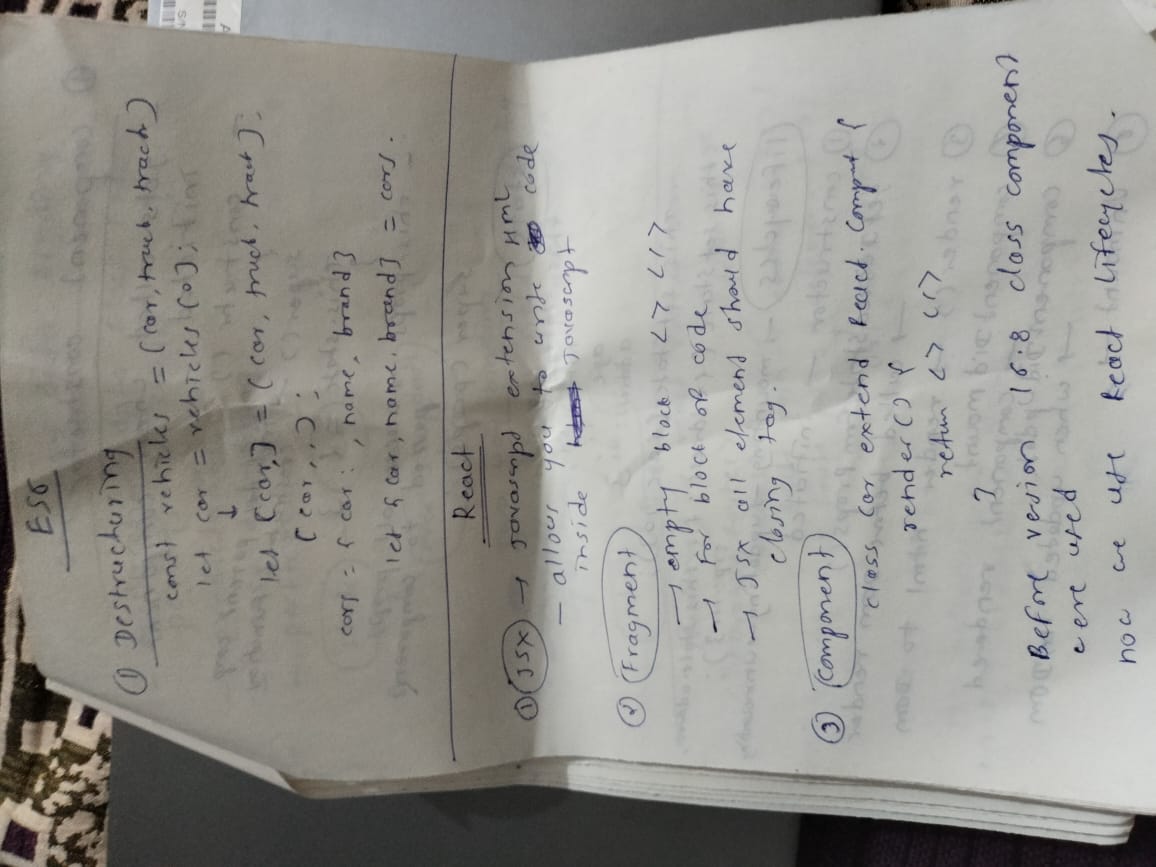 ES6
① Destructuring
const vehicles = (car, truck, trach)
let car = vehicles [0];
↓
let [car,] = (car, truck, tract);
(car,,);
cars = { car: , name, brand}
let { car, name, brand} = cars.
React
① JSX → Javascript extension HTML
- allows you to write code
inside Javascript
② Fragment
→ empty block <> </>
→ for block of code
→ JSX all element should have
closing tag.
③ Component
class Car extend React. Component {
render() {
return <> </>
}
Before version 16.8 class component
were used
now we use React Lifecycles.